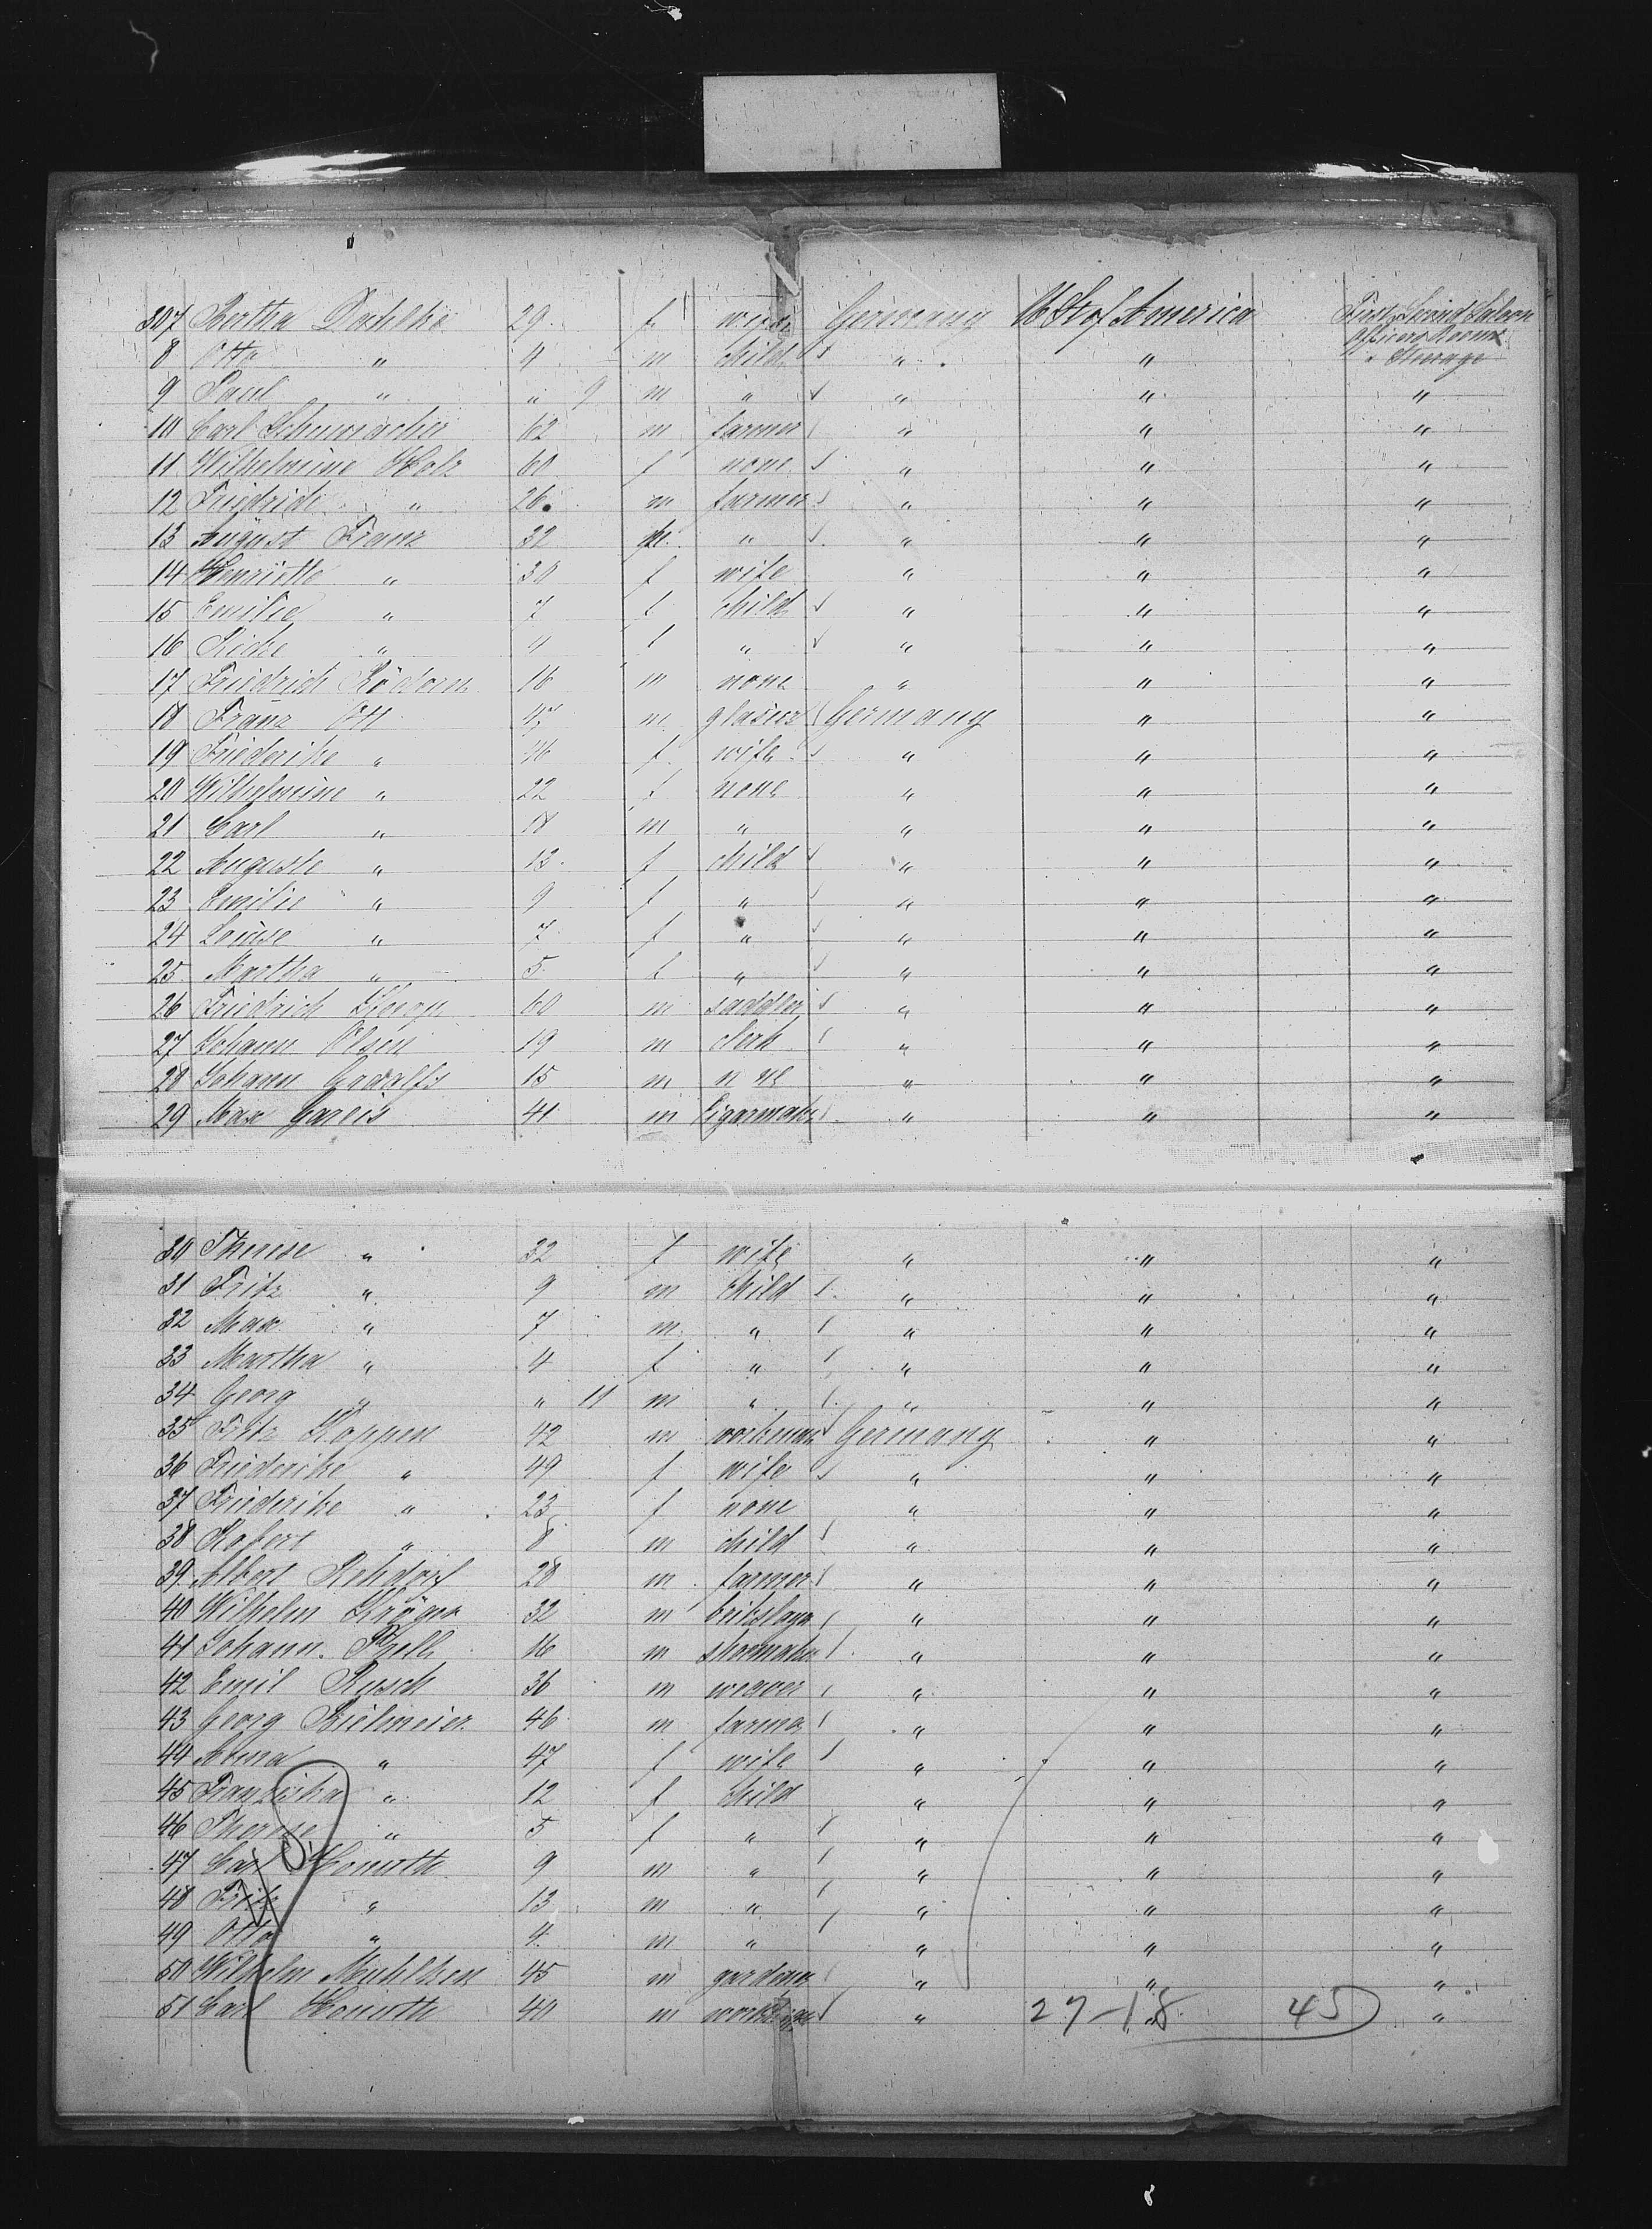 307 Bertha Dochlke 29 f wife Germany U St of America First, Second Saloon
Officers Rooms
8 Otto " 4 m child " " " Steerage
9 Paul " " 9 m " " " "
10 Carl Schumacher 62 m farmer " " "
11 Wilhelmine Holz 60 f none " " "
12 Friedrich " 26 m farmer " " "
13 August Franz 32 m " " " "
14 Henriette " 30 f wife " " "
15 Emilie " 7 f child " " "
16 Ricke " 4 f " " " "
17 Friedrich 16 m none " " "
18 Franz Ott 47 m glasier Germany " "
19 Friederike " 46 f wife " " "
20 Wilhelmine " 22 f none " " "
21 Carl " 18 m " " " "
22 Auguste " 13 f child " " "
23 Emilie " 9 f " " " "
24 Louise " 7 f " " " "
25 Martha " 5 f " " " "
26 Friedrich 60 m saddler " " "
27 Johann Olsen 19 m clerk " " "
28 Johann 15 m none " " "
29 Max Gareis 41 m Cigarmaker " " "
30 Therese " 32 f wife " " "
31 Fritz " 9 m child " " "
32 Max " 7 m " " " "
33 Martha " 4 f " " " "
34 Georg " " 11 m " " " "
35 Fritz Koppen 42 m workman Germany " "
36 Friederike " 49 f wife " " "
37 Friederike " 23 f none " " "
38 Robert " 8 m child " " "
39 Albert Rehdorf 28 m farmer " " "
40 Wilhelm Kröger 32 m brikslayer " " "
41 Johann 16 m shoemaker " " "
42 Emil Rusch 36 m weaver " " "
43 Georg Bielmeier 46 m farmer " " "
44 Anna " 47 f wife " " "
45 Franziska " 12 f child " " "
46 Therese " 5 f " " " "
47 Carl Homuth 9 m " " " "
48 Fritz " 13 m " " " "
49 Otto " 4 m " " " "
50 Wilhelm Muhlken 45 m gardener " " "
51 Carl Homuth 40 m workman " " "
27-18 45